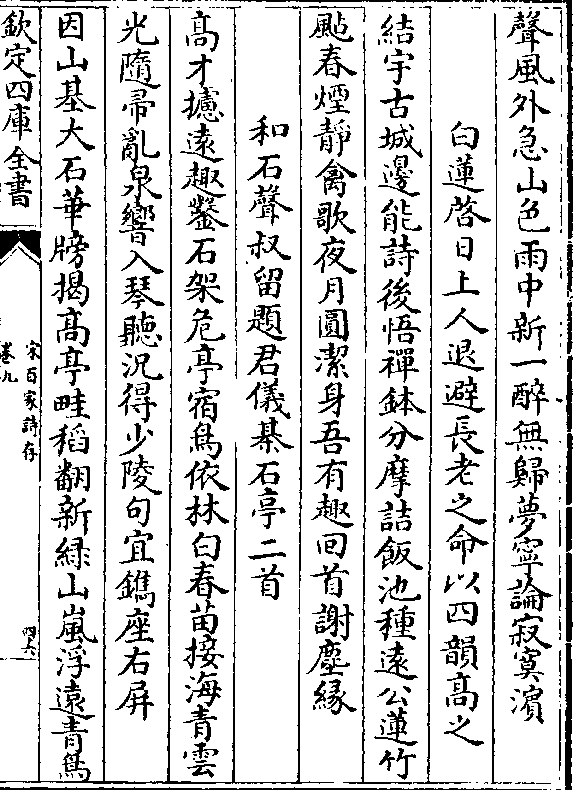 聲風外急山色雨中新一醉無歸夢寧論寂寞濱
白蓮啓日上人退避長老之命以四韻髙之
結宇古城邊能詩後悟禪鉢分摩詰飯池種遠公蓮竹
颭春煙靜禽歌夜月圓潔身吾有趣回首謝塵縁
和石聲叔留題君儀棊石亭二首
髙才攄逺趣鑿石架危亭宿鳥依林白春苗接海青雲
光隨帚亂泉響入琴聽況得少陵句宜鐫座右屏
因山基大石華牓揭髙亭畦稻翻新緑山嵐浮遠青鳥
欽定四庫全書
宋百家詩存
卷九
四六